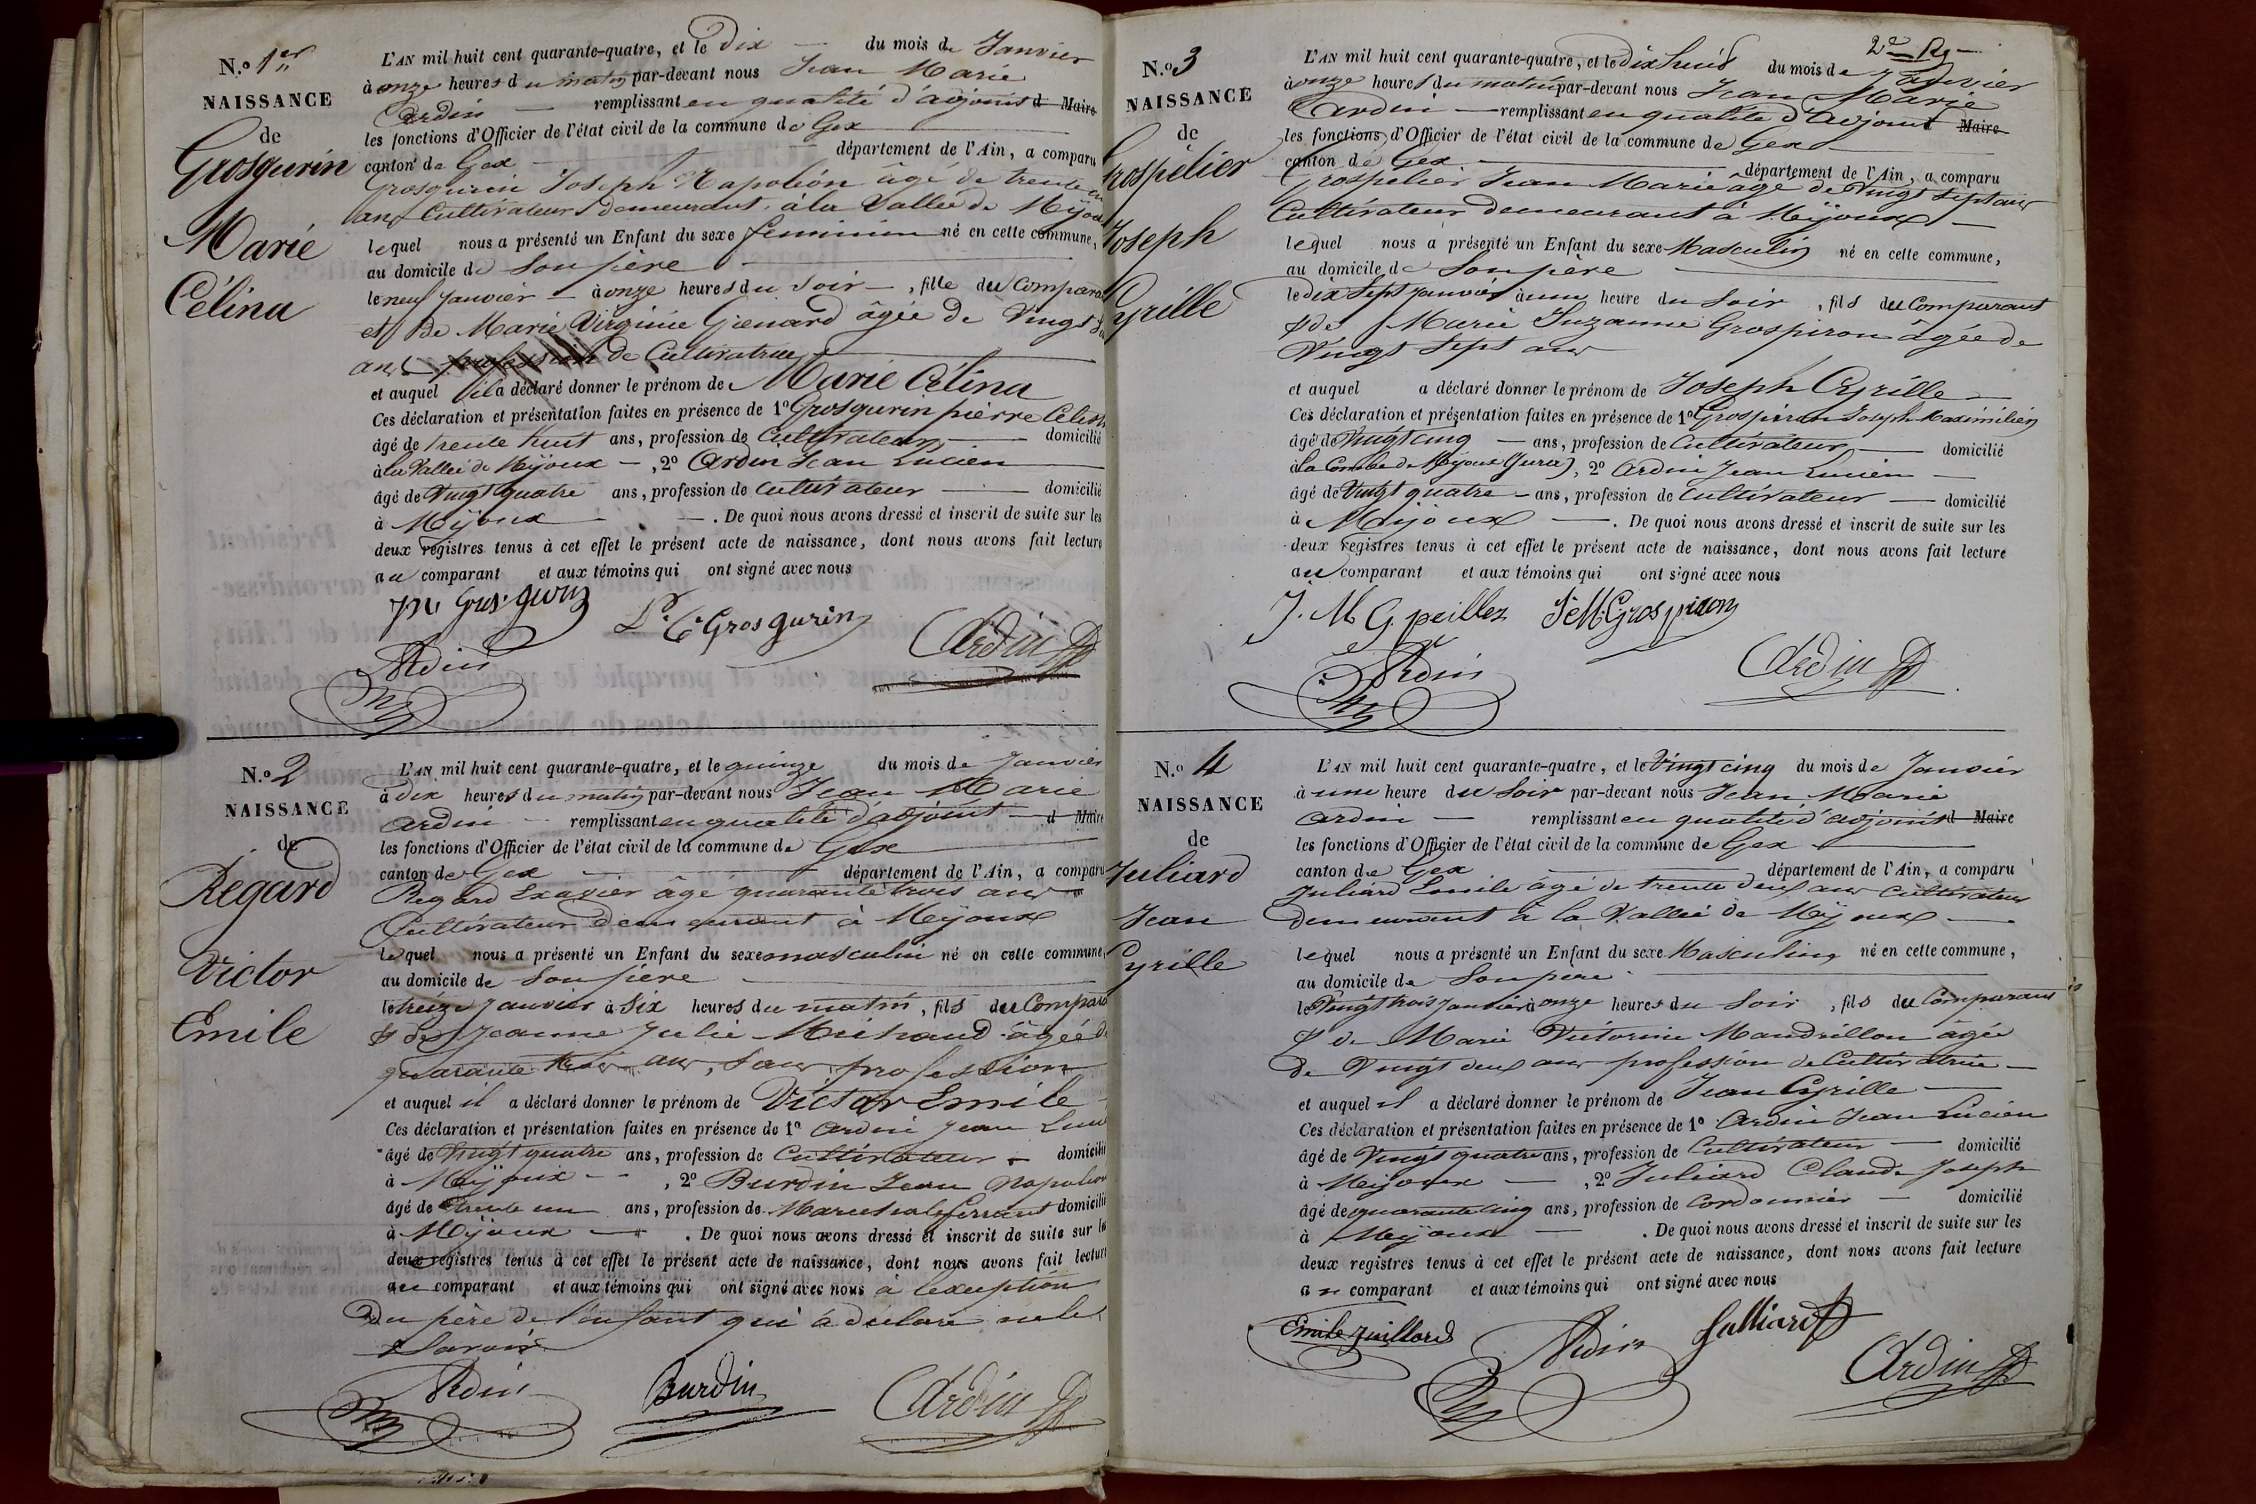 N.o 1er
NAISSANCE
de
Grosgurin
Marie
Célina
L'AN mil huit cent quarante-quatre, et le dix du mois de Janvier
à onze heures du matin par-devant nous Jean Marie
Ardin remplissant en qualité d'adjoint d Maire
les fonctions d'Officier de l'état civil de la commune de Gex
canton de Gex département de l'Ain, a comparu
Grosgurin Joseph Napoléon âgé de trente un
ans Cultivateur demeurant à la Vallée de Mijoux
lequel nous a présenté un Enfant du sexe feminin né en cette commune,
au domicile de Son père
le neuf Janvier à onze heures du Soir, fille du Compara
et de Marie Virginie Grenard âgée de Vingt
ans profession de Cultivatrice
et auquel il a déclaré donner le prénom de Marie Célina
Ces déclaration et présentation faites en présence de 1o Grosgurin pierre Célest
âgé de trente huit ans, profession de Cultivateur domicilié
à la Vallée de Mijoux, 2o Ardin Jean Lucien
âgé de Vingt quatre ans, profession de Cultivateur domicilié
à Mijoux. De quoi nous avons dressé et inscrit de suite sur les
deux registres tenus à cet effet le présent acte de naissance, dont nous avons fait lecture
au comparant et aux témoins qui ont signé avec nous
Grosgurin
P. C. Grosgurin
Ardin
Ardin
N.o 2
NAISSANCE
de
Régard
Victor
Emile
L'AN mil huit cent quarante-quatre, et le quinze du mois de Janvier
à dix heures du matin par-devant nous Jean Marie
Ardin remplissant en qualité d'adjoint d Maire
les fonctions d'Officier de l'état civil de la commune de Gex
canton de Gex département de l'Ain, a comparu
Regard Exavier âgé quarante trois ans
Cultivateur demeurant à Mijoux
lequel nous a présenté un Enfant du sexe masculin né en cette commune,
au domicile de Son père
le treize Janvier à Six heures du matin, fils du Compara
& de Jeanne Julie Michaud âgée de
quarante trois ans, Sans profession
et auquel il a déclaré donner le prénom de Victor Emile
Ces déclaration et présentation faites en présence de 1o Ardin Jean Luci
âgé de Vingt quatre ans, profession de Cultivateur domicilié
à Mijoux, 2o Burdin Jean Napoléon
âgé de trente un ans, profession de Marechal ferrant domicilié
à Mijoux. De quoi nous avons dressé et inscrit de suite sur les
deux registres tenus à cet effet le présent acte de naissance, dont nous avons fait lecture
au comparant et aux témoins qui ont signé avec nous à l'exception
du père de l'enfant qui à déclaré ne le
Savoir
Ardin
Burdin
Ardin
2e Rg
N.o 3
NAISSANCE
de
Grospélier
Joseph
Cyrille
L'AN mil huit cent quarante-quatre, et le dix huit du mois de Janvier
à onze heures du matin par-devant nous Jean Marie
Ardin remplissant en qualité d'adjoint Maire
les fonctions d'Officier de l'état civil de la commune de Gex
canton de Gex département de l'Ain, a comparu
Grospelier Jean Marie âgé de Vingt Sept ans
Cultivateur demeurant à Mijoux
lequel nous a présenté un Enfant du sexe Masculin né en cette commune,
au domicile de Son père
le dix Sept Janvier à une heure du Soir, fils du Comparant
& de Marie Suzanne Grospiron âgée de
Vingt Sept ans
et auquel a déclaré donner le prénom de Joseph Cyrille
Ces déclaration et présentation faites en présence de 1o Grospiron Joseph Maximilien
âgé de Vingt cinq ans, profession de Cultivateur domicilié
à la Combe de Mijoux (Jura), 2o Ardin Jean Lucien
âgé de Vingt quatre ans, profession de Cultivateur domicilié
à Mijoux. De quoi nous avons dressé et inscrit de suite sur les
deux registres tenus à cet effet le présent acte de naissance, dont nous avons fait lecture
au comparant et aux témoins qui ont signé avec nous
J. M. G. peillez
J M Grospiron
Ardin
Ardin
N.o 4
NAISSANCE
de
Juliard
Jean
Cyrille
L'AN mil huit cent quarante-quatre, et le Vingt cinq du mois de Janvier
à une heure du Soir par-devant nous Jean Marie
Ardin remplissant en qualité d'adjoint d Maire
les fonctions d'Officier de l'état civil de la commune de Gex
canton de Gex département de l'Ain, a comparu
Juliard Emile âgé de trente deux ans Cultivateur
demeurant à la Vallée de Mijoux
lequel nous a présenté un Enfant du sexe Masculin né en cette commune,
au domicile de Son père
le Vingt trois Janvier à onze heures du Soir, fils du Comparant
& de Marie Victorine Mandrillon âgée
de Vingt deux ans profession de Cultivatrice
et auquel il a déclaré donner le prénom de Jean Cyrille
Ces déclaration et présentation faites en présence de 1o Ardin Jean Lucien
âgé de Vingt quatre ans, profession de Cultivateur domicilié
à Mijoux, 2o Juliard Claude Joseph
âgé de quarante cinq ans, profession de Cordonnier domicilié
à Mijoux. De quoi nous avons dressé et inscrit de suite sur les
deux registres tenus à cet effet le présent acte de naissance, dont nous avons fait lecture
au comparant et aux témoins qui ont signé avec nous
Emile Juillard
Ardin
Julliard
Ardin